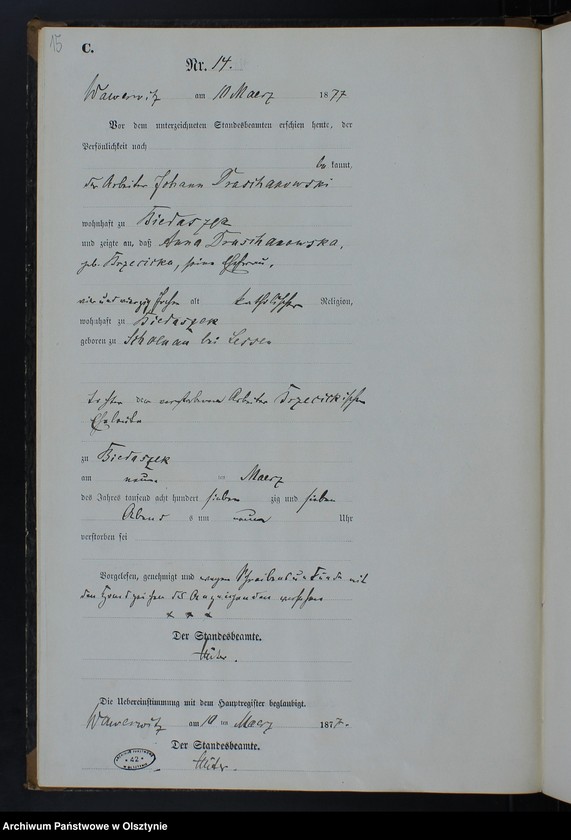 15
C.
Nr. 14.
Wawerwitz am 10 Maerz 1877
Vor dem unterzeichneten Standesbeamten erschien heute, der
Persönlichkeit nach
bekannt,
der Arbeiter Johann Draschanowski
wohnhaft zu Biedaszek
und zeigte an, daß Anna Draschanowska,
geb. Trzecicka, seine Ehefrau,
vier und vierzig Jahre alt katholischer Religion,
wohnhaft zu Biedaszek
geboren zu bei Lessen
Tochter der verstorbenen Arbeiter Trzecickischen
Eheleute
zu Biedaszek
am neun ten Maerz
des Jahres tausend acht hundert sieben zig und sieben
Abend s um neun Uhr
verstorben sei
Vorgelesen, genehmigt und wegen Schreibensunkunde mit
den Handzeichen des Anzeigenden versehen
+ + +
Der Standesbeamte.
Die Uebereinstimmung mit dem Hauptregister beglaubigt.
Wawerwitz am 10 ten Maerz 1877.
Der Standesbeamte.
42
Archiwum Państwowe w Olsztynie